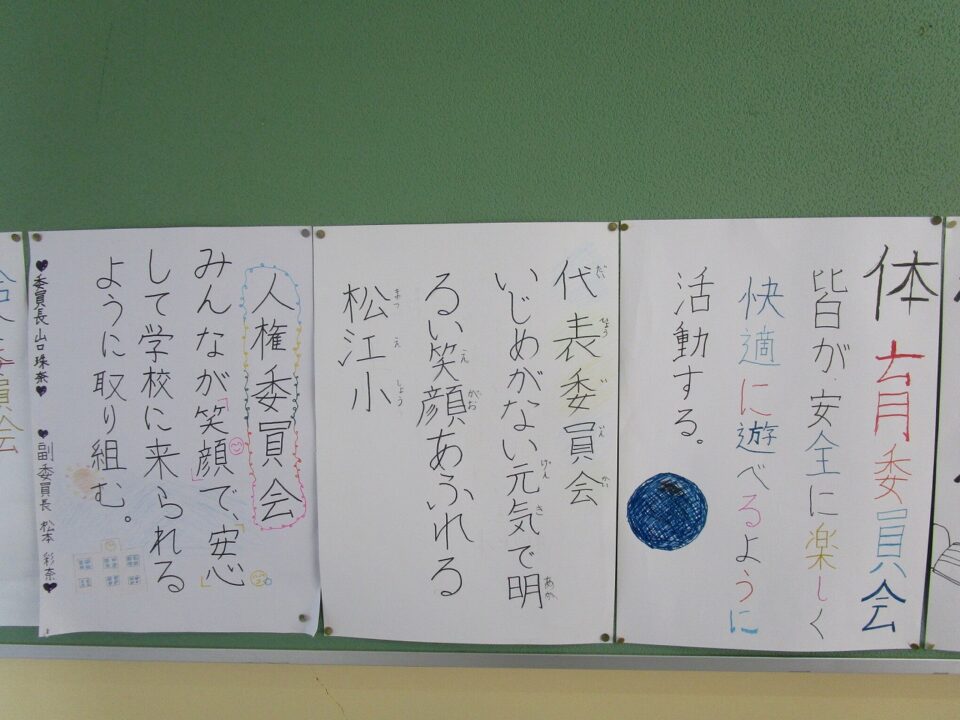 体育委員会
皆が、安全に楽しく
快適に遊べるように
活動する。
代表委員会
いじめがない元気で明
るい笑顔あふれる
松江小
人権委員会
みんなが「笑顔」で、「安心」
して学校に来られる
ように取り組む。
♥委員長 山口 珠奈♥ ♥副委員長 松本 彩奈♥
員会